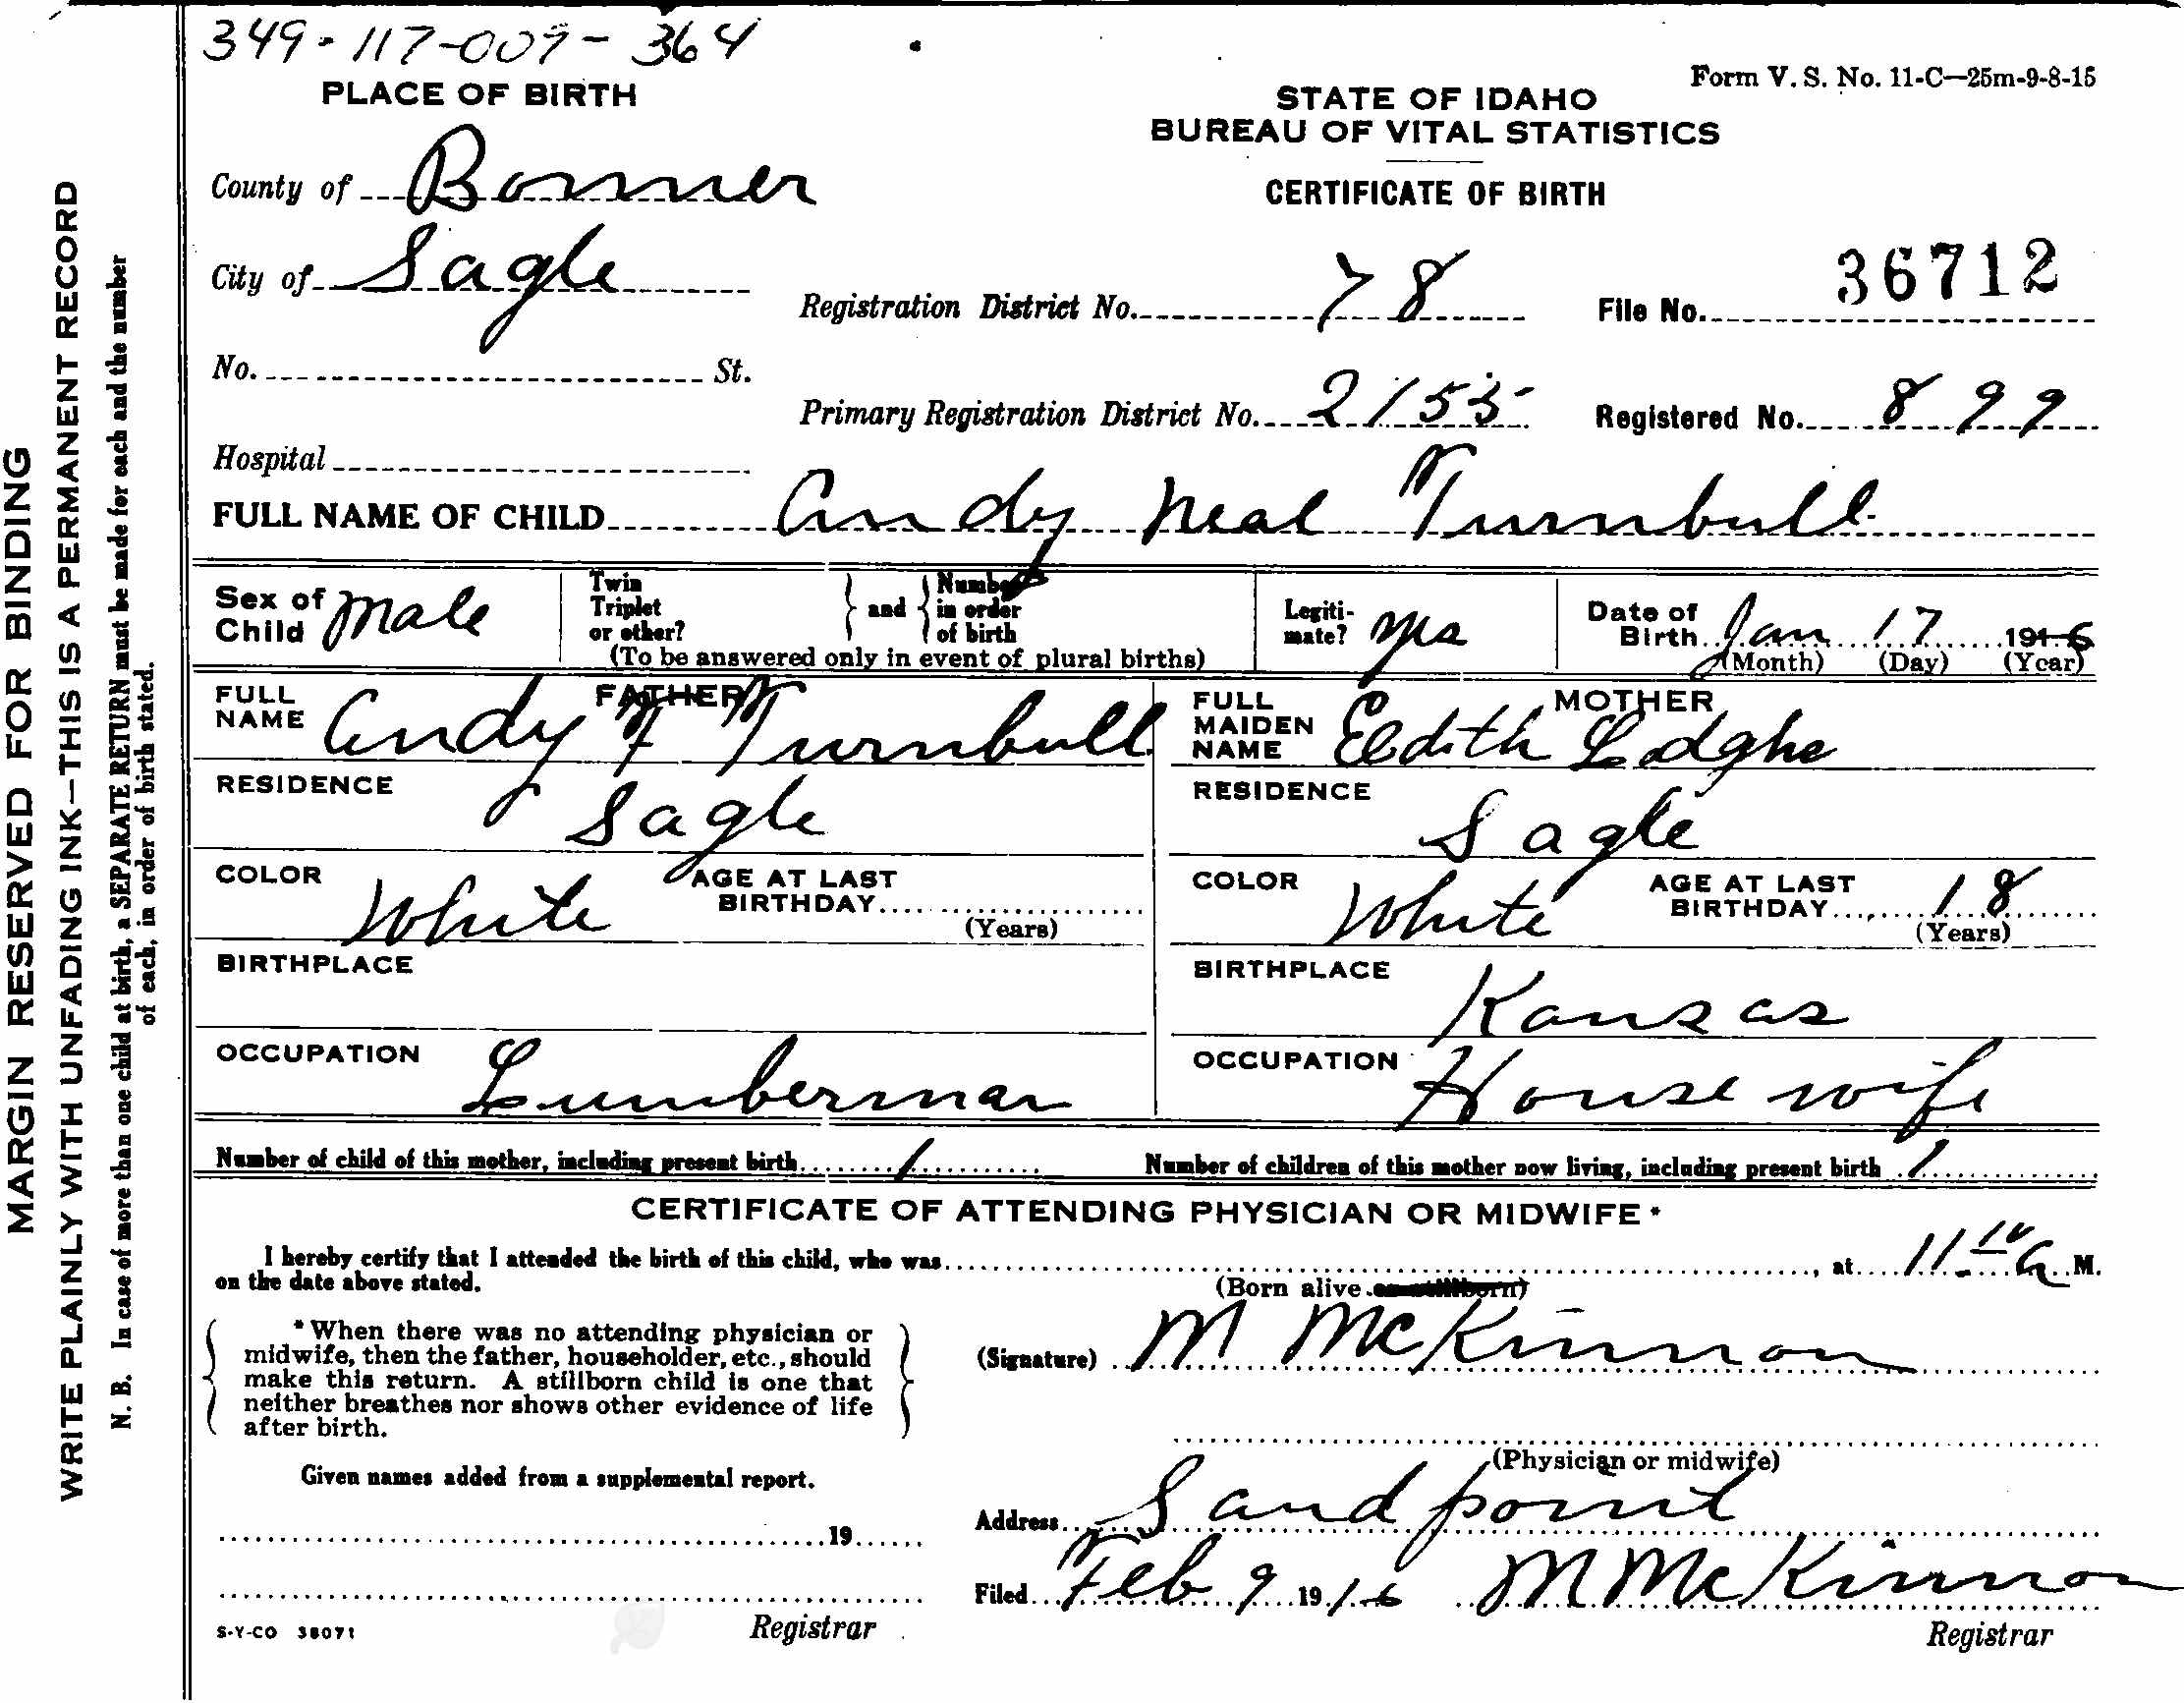 349-117-009-364
PLACE OF BIRTH
Form V. S. No. 11-C—25m-9-8-15
STATE OF IDAHO
BUREAU OF VITAL STATISTICS
CERTIFICATE OF BIRTH
County of Bonner
City of Sagle
Registration District No. 78
File No. 36712
No. St.
Primary Registration District No. 2155
Registered No. 899
Hospital
FULL NAME OF CHILD Andy Neal Turnbull
Sex of Child Male
Twin Triplet or other? and Number in order of birth
(To be answered only in event of plural births)
Legitimate? yes
Date of Birth Jan 17 1916
(Month) (Day) (Year)
FATHER
FULL NAME Andy F Turnbull
RESIDENCE Sagle
COLOR White
AGE AT LAST BIRTHDAY
(Years)
BIRTHPLACE
OCCUPATION Lumberman
MOTHER
FULL MAIDEN NAME Edith
RESIDENCE Sagle
COLOR White
AGE AT LAST BIRTHDAY 18
(Years)
BIRTHPLACE Kansas
OCCUPATION Housewife
Number of child of this mother, including present birth 1
Number of children of this mother now living, including present birth 1
CERTIFICATE OF ATTENDING PHYSICIAN OR MIDWIFE*
I hereby certify that I attended the birth of this child, who was , at 11 10 a M.
on the date above stated.
(Born alive or stillborn)
*When there was no attending physician or
midwife, then the father, householder, etc., should
make this return. A stillborn child is one that
neither breathes nor shows other evidence of life
after birth.
(Signature) M McKinnon
(Physician or midwife)
Given names added from a supplemental report.
19
Address Sandpoint
Filed Feb 9 1916 M McKinnon
Registrar
Registrar
S-Y-CO 38071
MARGIN RESERVED FOR BINDING
WRITE PLAINLY WITH UNFADING INK—THIS IS A PERMANENT RECORD
N. B. In case of more than one child at birth, a SEPARATE RETURN must be made for each and the number
of each, in order of birth stated.